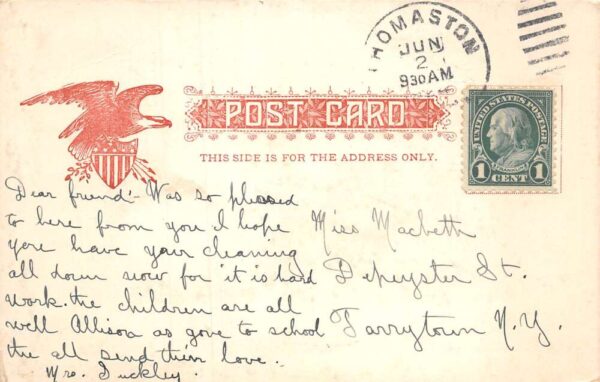 THOMASTON
JUN
2
930AM
POST CARD
THIS SIDE IS FOR THE ADDRESS ONLY.
UNITED STATES POSTAGE
FRANKLIN
1 1
CENT
Dear friend - Was so plessed
to here from you I hope
yore have your cleaning
all down now for it is hard
work. the children are all
well Allison as gove to school
the all send them love.
Mrs. Duckley.
Miss Macbeth
Depeyster St.
Tarrytown N.Y.